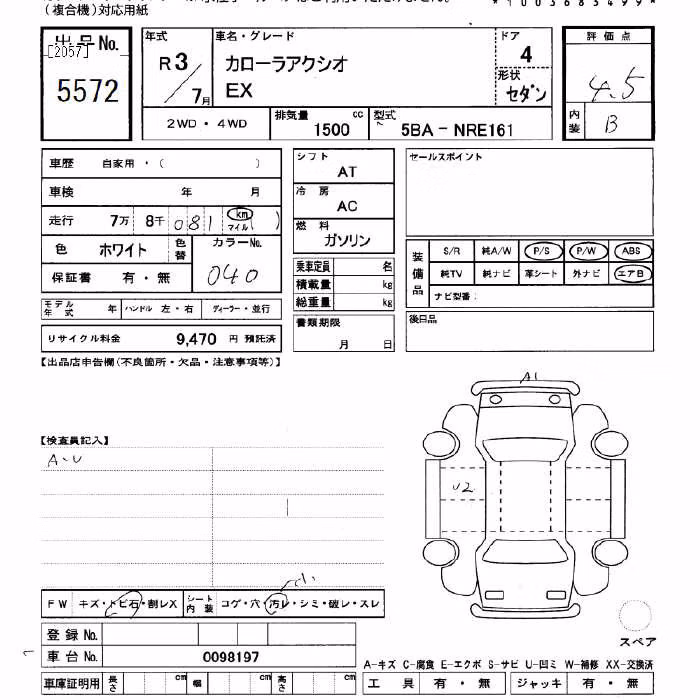 (複合機)対応用紙
*1003683499*
出品No.
[2057]
5572
年式
R3/7月
車名・グレード
カローラアクシオ
EX
ドア
4
形状
セダン
2WD・4WD
排気量
1500 cc
型式
5BA-NRE161
評価点
4.5
内装
B
車歴 自家用・( )
車検 年 月
走行 7万 8千 081 km マイル ( )
色 ホワイト 色替
カラーNo.
040
保証書 有・無
モデル年式 年 ハンドル 左・右 ディーラー・並行
リサイクル料金 9,470 円 預託済
シフト
AT
冷房
AC
燃料
ガソリン
乗車定員 名
積載量 kg
総重量 kg
書類期限
月 日
セールスポイント
装備品
S/R 純A/W P/S P/W ABS
純TV 純ナビ 革シート 外ナビ エアB
ナビ型番:
後日品
【出品店申告欄(不良箇所・欠品・注意事項等)】
【検査員記入】
A・U
A1
U2
FW キズ・トビ石・割レX シート内装 コゲ・穴・汚レ・シミ・破レ・スレ
登録No.
車台No. 0098197
車庫証明用 長さ cm 幅 cm 高さ cm
スペア
A-キズ C-腐食 E-エクボ S-サビ U-凹ミ W-補修 XX-交換済
工具 有・無 ジャッキ 有・無